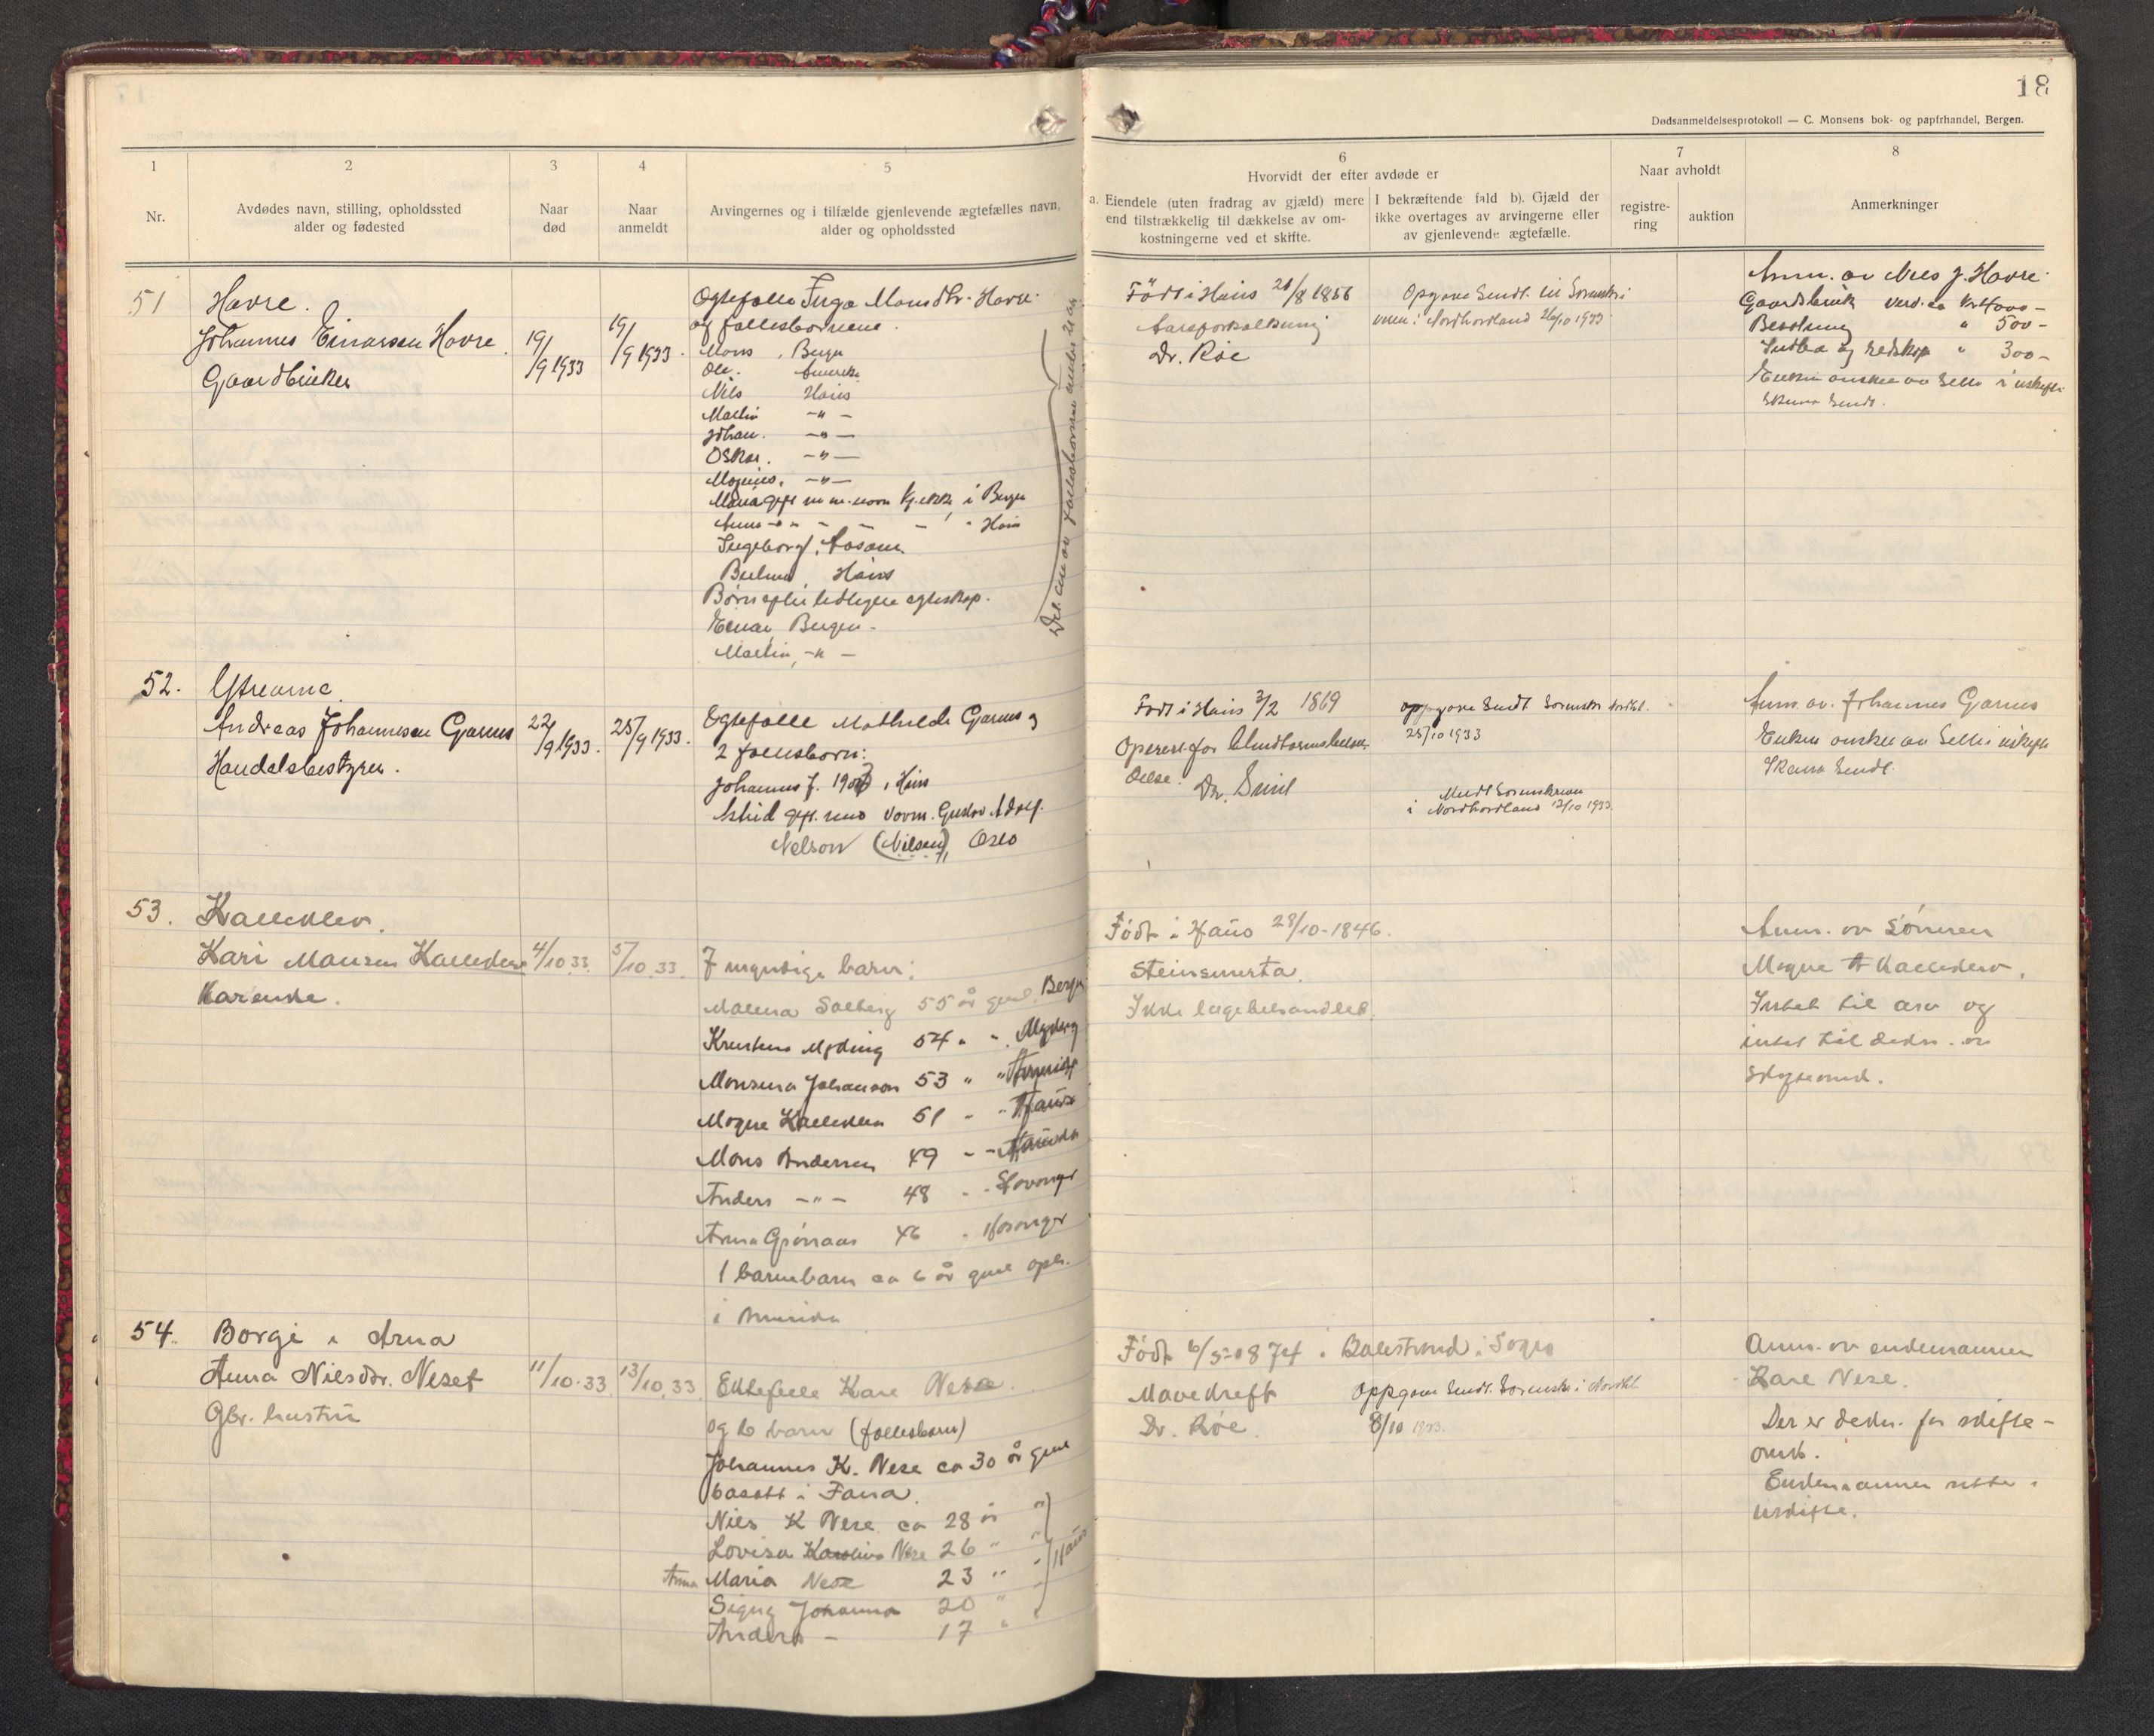 18
Dødsanmeldelsesprotokoll — C. Monsens bok- og papirhandel, Bergen.
1
Nr.
2
Avdødes navn, stilling, opholdssted
alder og fødested
3
Naar
død
4
Naar
anmeldt
5
Arvingernes og i tilfælde gjenlevende ægtefælles navn,
alder og opholdssted
6
Hvorvidt der efter avdøde er
a. Eiendele (uten fradrag av gjæld) mere
end tilstrækkelig til dækkelse av om-
kostningerne ved et skifte.
I bekræftende fald b). Gjæld der
ikke overtages av arvingerne eller
av gjenlevende ægtefælle.
7
Naar avholdt
registre-
ring
auktion
8
Anmerkninger
51
Havre.
Johannes Einarsen Havre.
Gaardbruker
19/
/9 1933
19/
/9 1933.
Egtefelle Inga Monsdtr. Havre.
og fellesbørnene.
Mons, Bergen
Ole. Amerika
Nils Haus
Martin -"-
Johan. -"-
Oskar. -"-
Magnus, -"-
Maria gift m i Bergen
Anna Haus
Ingeborg,
Haus
Børn efter tidligere egteskap.
Einar, Bergen -
Martin, -"-
av fællesbørnene under 21 aar
Født i Haus 21/8 1856
Aareforkalkning
Dr. Røe
Opgave sendt til Sorenskri
veren i Nordhordland 26/10 1933
Anm. av Nils J. Havre.
Gaardsbruk verd. ca kr
Besetning " 500-
Indbo og redskap " 300-
Enken ønsker aa sitte i uskifte.
Skema sendt.
52.
Ytrearne
Andreas Johannesen Garnes
Handelsbestyrer.
22/
/9 1933.
25/
/9 1933.
Egtefelle Mathilde Garnes og
2 fellesbørn:
Johannes J. i Haus
Astrid gift med Gustav Adolf
Nelson (Nilsen), Oslo
Født i Haus 3/2 1869
Operert for
delse. Dr.
Oppgave sendt Sorenskr. Nordhl.
25/10 1933
Sorenskriveren
i Nordhordland 12/10 1933.
Anm. av. Johannes Garnes
Enken ønsker aa sitte i uskifte
Skema sendt.
53.
Kalleklev.
Kari Monsen Kalleklev
Kårenke.
4/10 33.
5/10 33.
7 myndige barn:
Malena Solberg 55 år gml. Bergen
Kristens Myking 54 " "
Monsina Johanson 53 " " Amerika
Mogne Kalleklev 51 " " Haus
Mons Andersen 49 " "
Anders -"- 48 " " Stavanger
Anna Grønaas 46 " Hosanger
1 barnebarn ca 6 år gml oph.
i Amerika
Født i Haus 28/10-1846.
Steinsmerta.
Ikke lægebehandlet.
Anm. av sønnen
Mogne A Kalleklev.
Intet til arv og
intet til dekn. av
skifteomk.
54.
Borge i Arna
Anna Nilsdtr. Neset
Gbr. hustru
11/10.33
13/10.33.
Ektefelle Kare Nese.
og 6 barn (fellesbarn)
Johannes K. Nese ca 30 år gml
bosatt i Fana.
Nils K Nese ca 28 år "
Lovisa Karolina Nese 26 " "
Anna Maria Nese 23 " "
Haus
Signy Johanna 20 "
Anders - 17 "
Født 6/5-1874 i Balestrand i Sogn
Mavekreft
Dr. Røe.
Oppgave sendt. Sorenskr. i Nordhl.
8/10 1933.
Anm. av enkemannen
Kare Nese.
Der er dekn. for skifte-
omk.
Enkemannen sitte i
uskifte.